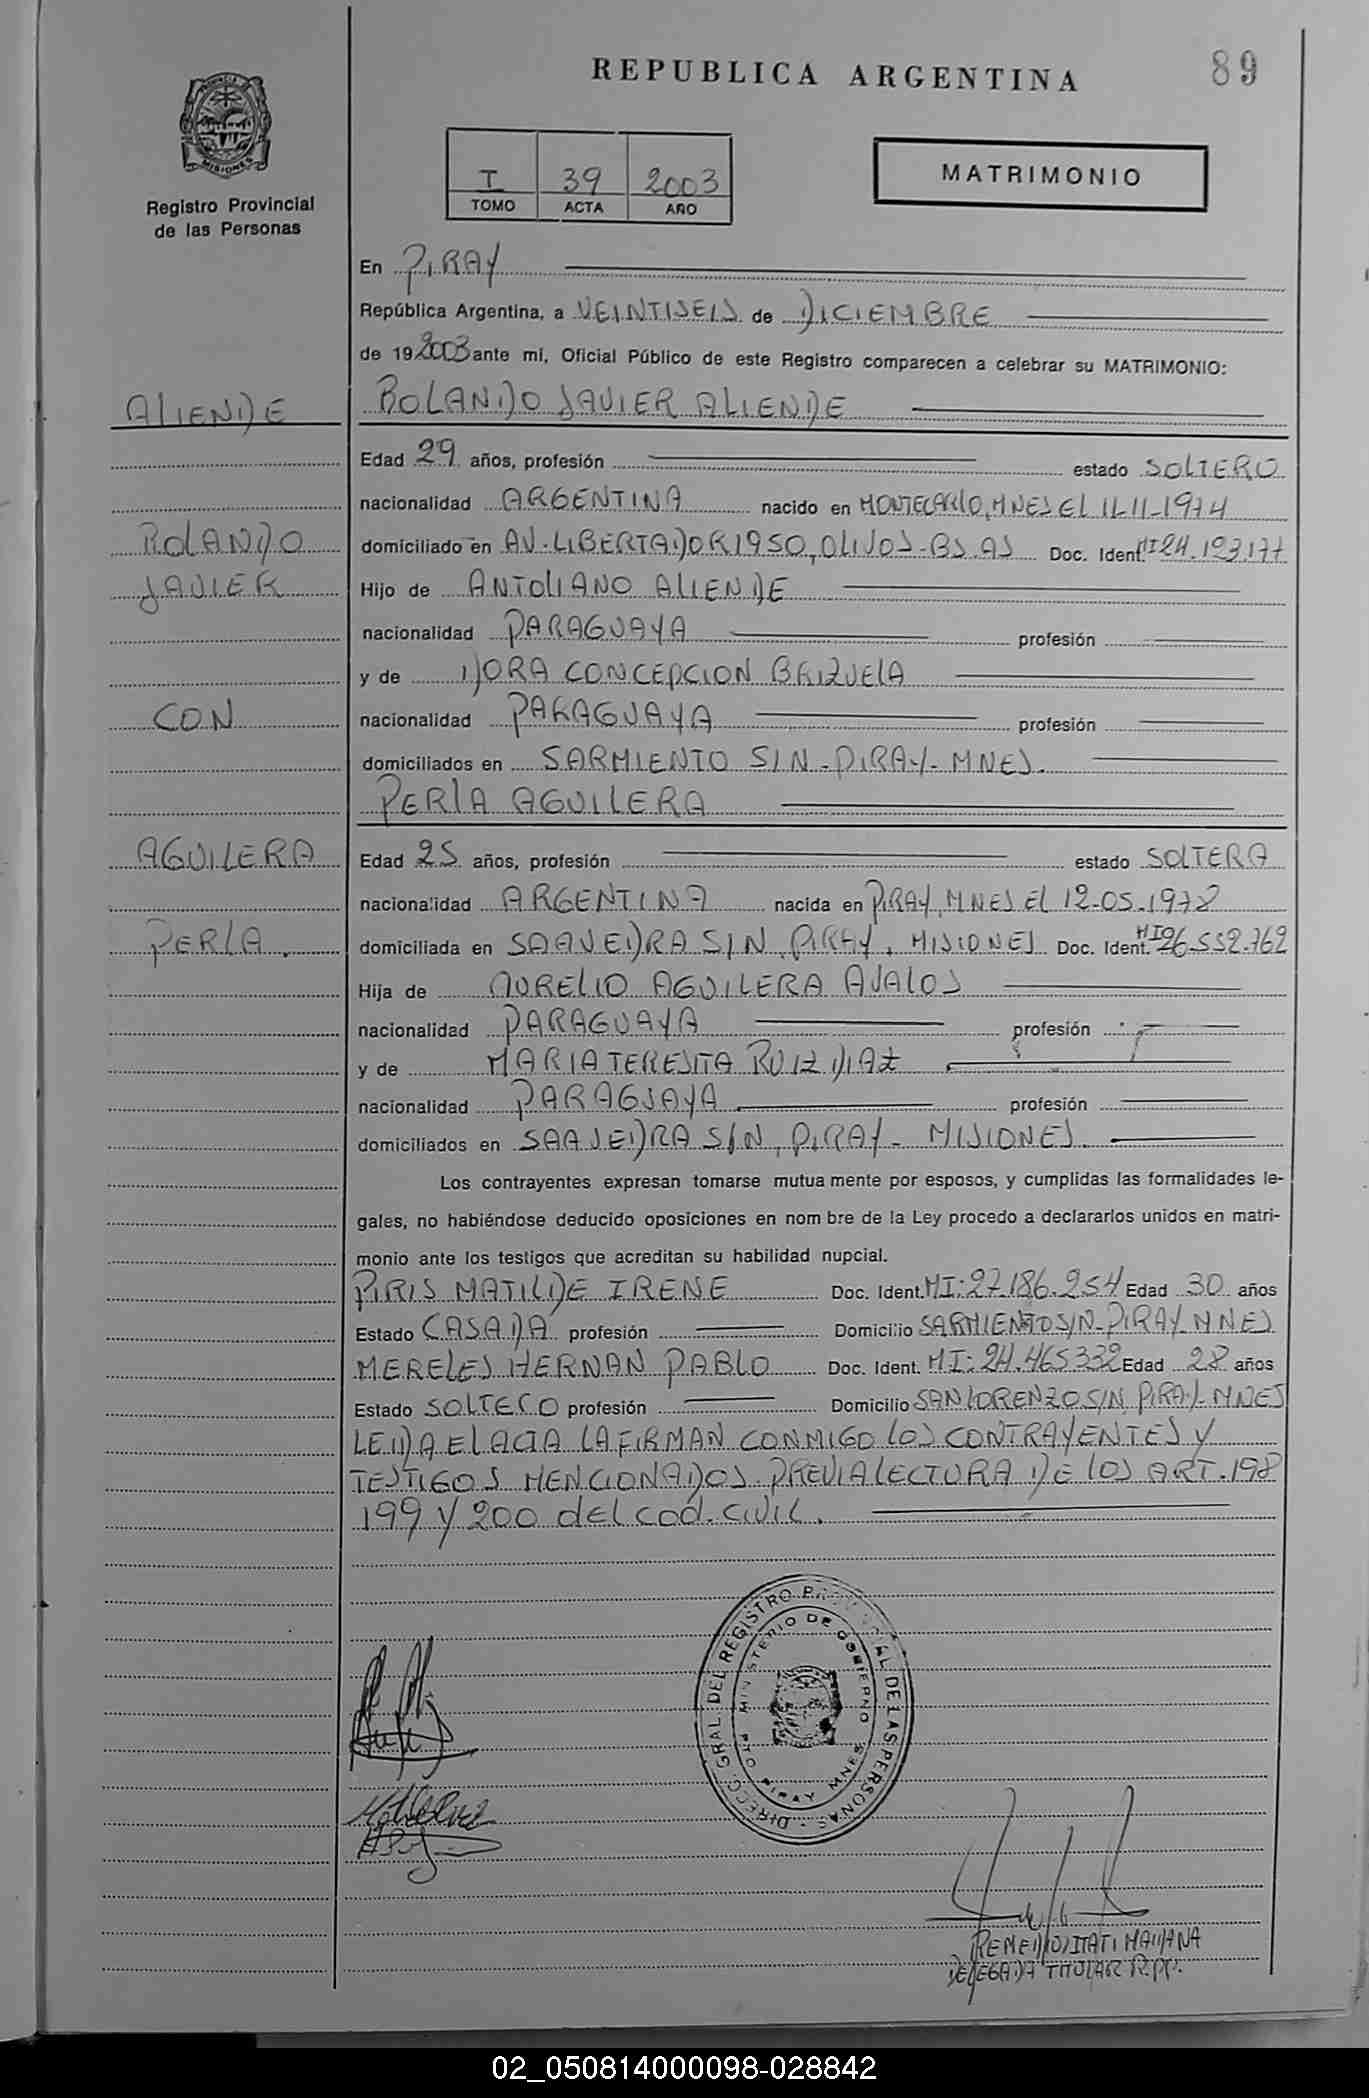 REPUBLICA ARGENTINA
89
PROVINCIA DE MISIONES
Registro Provincial
de las Personas
I 39 2003
TOMO ACTA AÑO
MATRIMONIO
En PIRAY
República Argentina, a VEINTISEIS de DICIEMBRE
de 19 2003 ante mí, Oficial Público de este Registro comparecen a celebrar su MATRIMONIO:
ALIENDE ROLANDO JAVIER ALIENDE
Edad 29 años, profesión estado SOLTERO
nacionalidad ARGENTINA nacido en MONTECARLO, MNES EL 11-11-1974
ROLANDO domiciliado en AV. LIBERTADOR 1950, OLIVOS-BS.AS Doc. Ident. MI 24.193.177
JAVIER Hijo de ANTOLIANO ALIENDE
nacionalidad PARAGUAYA profesión
y de DORA CONCEPCION BRIZUELA
CON nacionalidad PARAGUAYA profesión
domiciliados en SARMIENTO S/N-PIRAY-MNES.
PERLA AGUILERA
AGUILERA Edad 25 años, profesión estado SOLTERA
nacionalidad ARGENTINA nacida en PIRAY, MNES EL 12-05-1978
PERLA. domiciliada en SAAVEDRA S/N, PIRAY, MISIONES Doc. Ident. MI 26.552.762
Hija de AURELIO AGUILERA AVALOS
nacionalidad PARAGUAYA profesión
y de MARIA TERESITA RUIZ DIAZ
nacionalidad PARAGUAYA profesión
domiciliados en SAAVEDRA S/N, PIRAY- MISIONES
Los contrayentes expresan tomarse mutua mente por esposos, y cumplidas las formalidades le-
gales, no habiéndose deducido oposiciones en nom bre de la Ley procedo a declararlos unidos en matri-
monio ante los testigos que acreditan su habilidad nupcial.
PIRIS MATILDE IRENE Doc. Ident. MI: 27.186.254 Edad 30 años
Estado CASADA profesión Domicilio SARMIENTO S/N-PIRAY-MNES
MERELES HERNAN PABLO Doc. Ident. MI: 24.465332 Edad 28 años
Estado SOLTERO profesión Domicilio SAN LORENZO S/N PIRAY-MNES
LEIDA EL ACTA LA FIRMAN CONMIGO LOS CONTRAYENTES Y
TESTIGOS MENCIONADOS PREVIA LECTURA DE LOS ART. 198
199 Y 200 del cod. civil.
DIRECC. GRAL. DEL REGISTRO PROVINCIAL DE LAS PERSONAS
MINISTERIO DE GOBIERNO
PTO PIRAY MNES
DELEGADA TITULAR R.P.P.
02_050814000098-028842